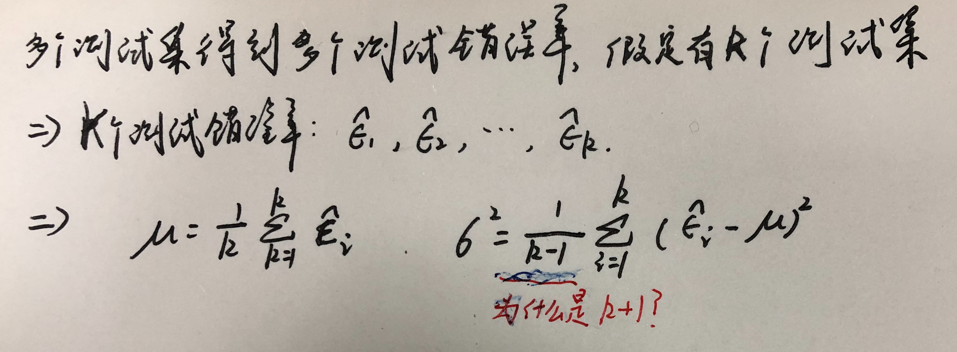 多个测试集得到多个测试错误率,假定有k个测试集
⇒ k个测试错误率: ε̂₁, ε̂₂, ⋯, ε̂ₖ.
⇒ μ = 1/k ∑_{k=1}^{k} ε̂ᵢ σ² = 1/(k-1) ∑_{i=1}^{k} (ε̂ᵢ - μ)²
为什么是 k+1?